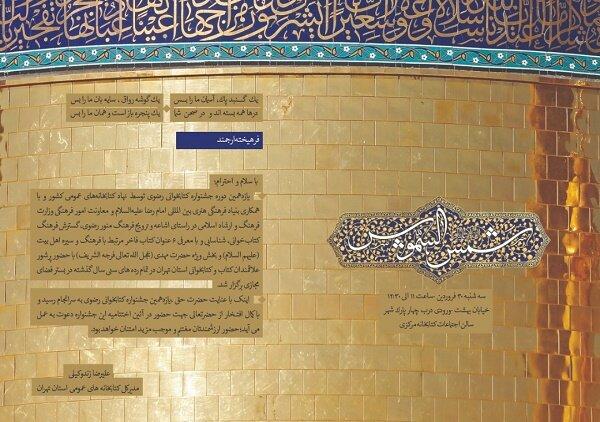 یک گنبد پاک، آسمان ما را بس
یک گوشه رواق، سایه بان ما را بس
درها همه بسته اند و در صحن شما
یک پنجره باز است و همان ما را بس
فرهیخته ارجمند
با سلام و احترام؛
یازدهمین دوره جشنواره کتابخوانی رضوی توسط نهاد کتابخانه‌های عمومی کشور و با
همکاری بنیاد فرهنگی هنری بین المللی امام رضا علیه‌السلام و معاونت امور فرهنگی وزارت
فرهنگ و ارشاد اسلامی در راستای اشاعه و ترویج فرهنگ منور رضوی، گسترش فرهنگ
کتاب‌خوانی، شناسایی و با معرفی ۶ عنوان کتاب فاخر مرتبط با فرهنگ و سیره اهل بیت
(علیهم السلام) و بخش ویژه حضرت مهدی (عجل الله تعالی فرجه الشریف) با حضور پرشور
علاقمندان کتاب و کتابخوانی استان تهران در تمام رده های سنی سال گذشته در بستر فضای
مجازی برگزار شد.
اینک با عنایت حضرت حق، یازدهمین جشنواره کتابخوانی رضوی به سرانجام رسید و
با کمال افتخار از حضرتعالی جهت حضور در آئین اختتامیه این جشنواره دعوت به عمل
می آید؛ حضور ارزشمندتان مغتنم و موجب مزید امتنان خواهد بود.
علیرضا زندوکیلی
مدیرکل کتابخانه های عمومی استان تهران
شمس الشموس
سه شنبه ۳۰ فروردین ساعت ۱۱ الی ۱۲:۳۰
خیابان بهشت -ورودی درب چهار پارک شهر
سالن اجتماعات کتابخانه مرکزی